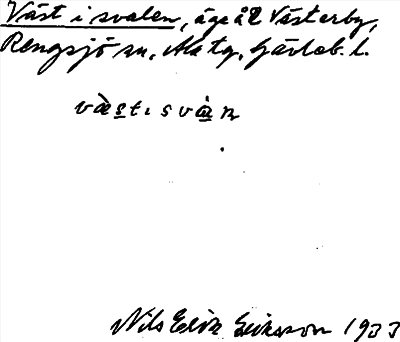 Väst i svalen, äga å Västerby,
Rengsjö sn, Ala tg, Gävleb. l.
vä̀stı svȧn
Nils Erik Eriksson 1933